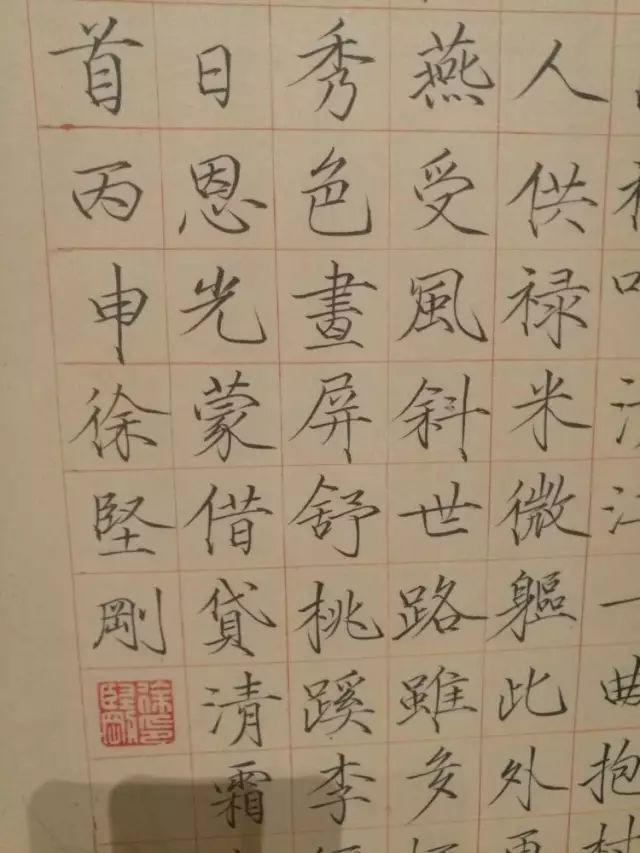 江一曲抱村
人供禄米微軀此外更
燕受風斜世路雖多梗
秀色畫屏舒桃蹊李徑
日恩光蒙借貸清霜
首丙申徐堅剛
徐堅剛印